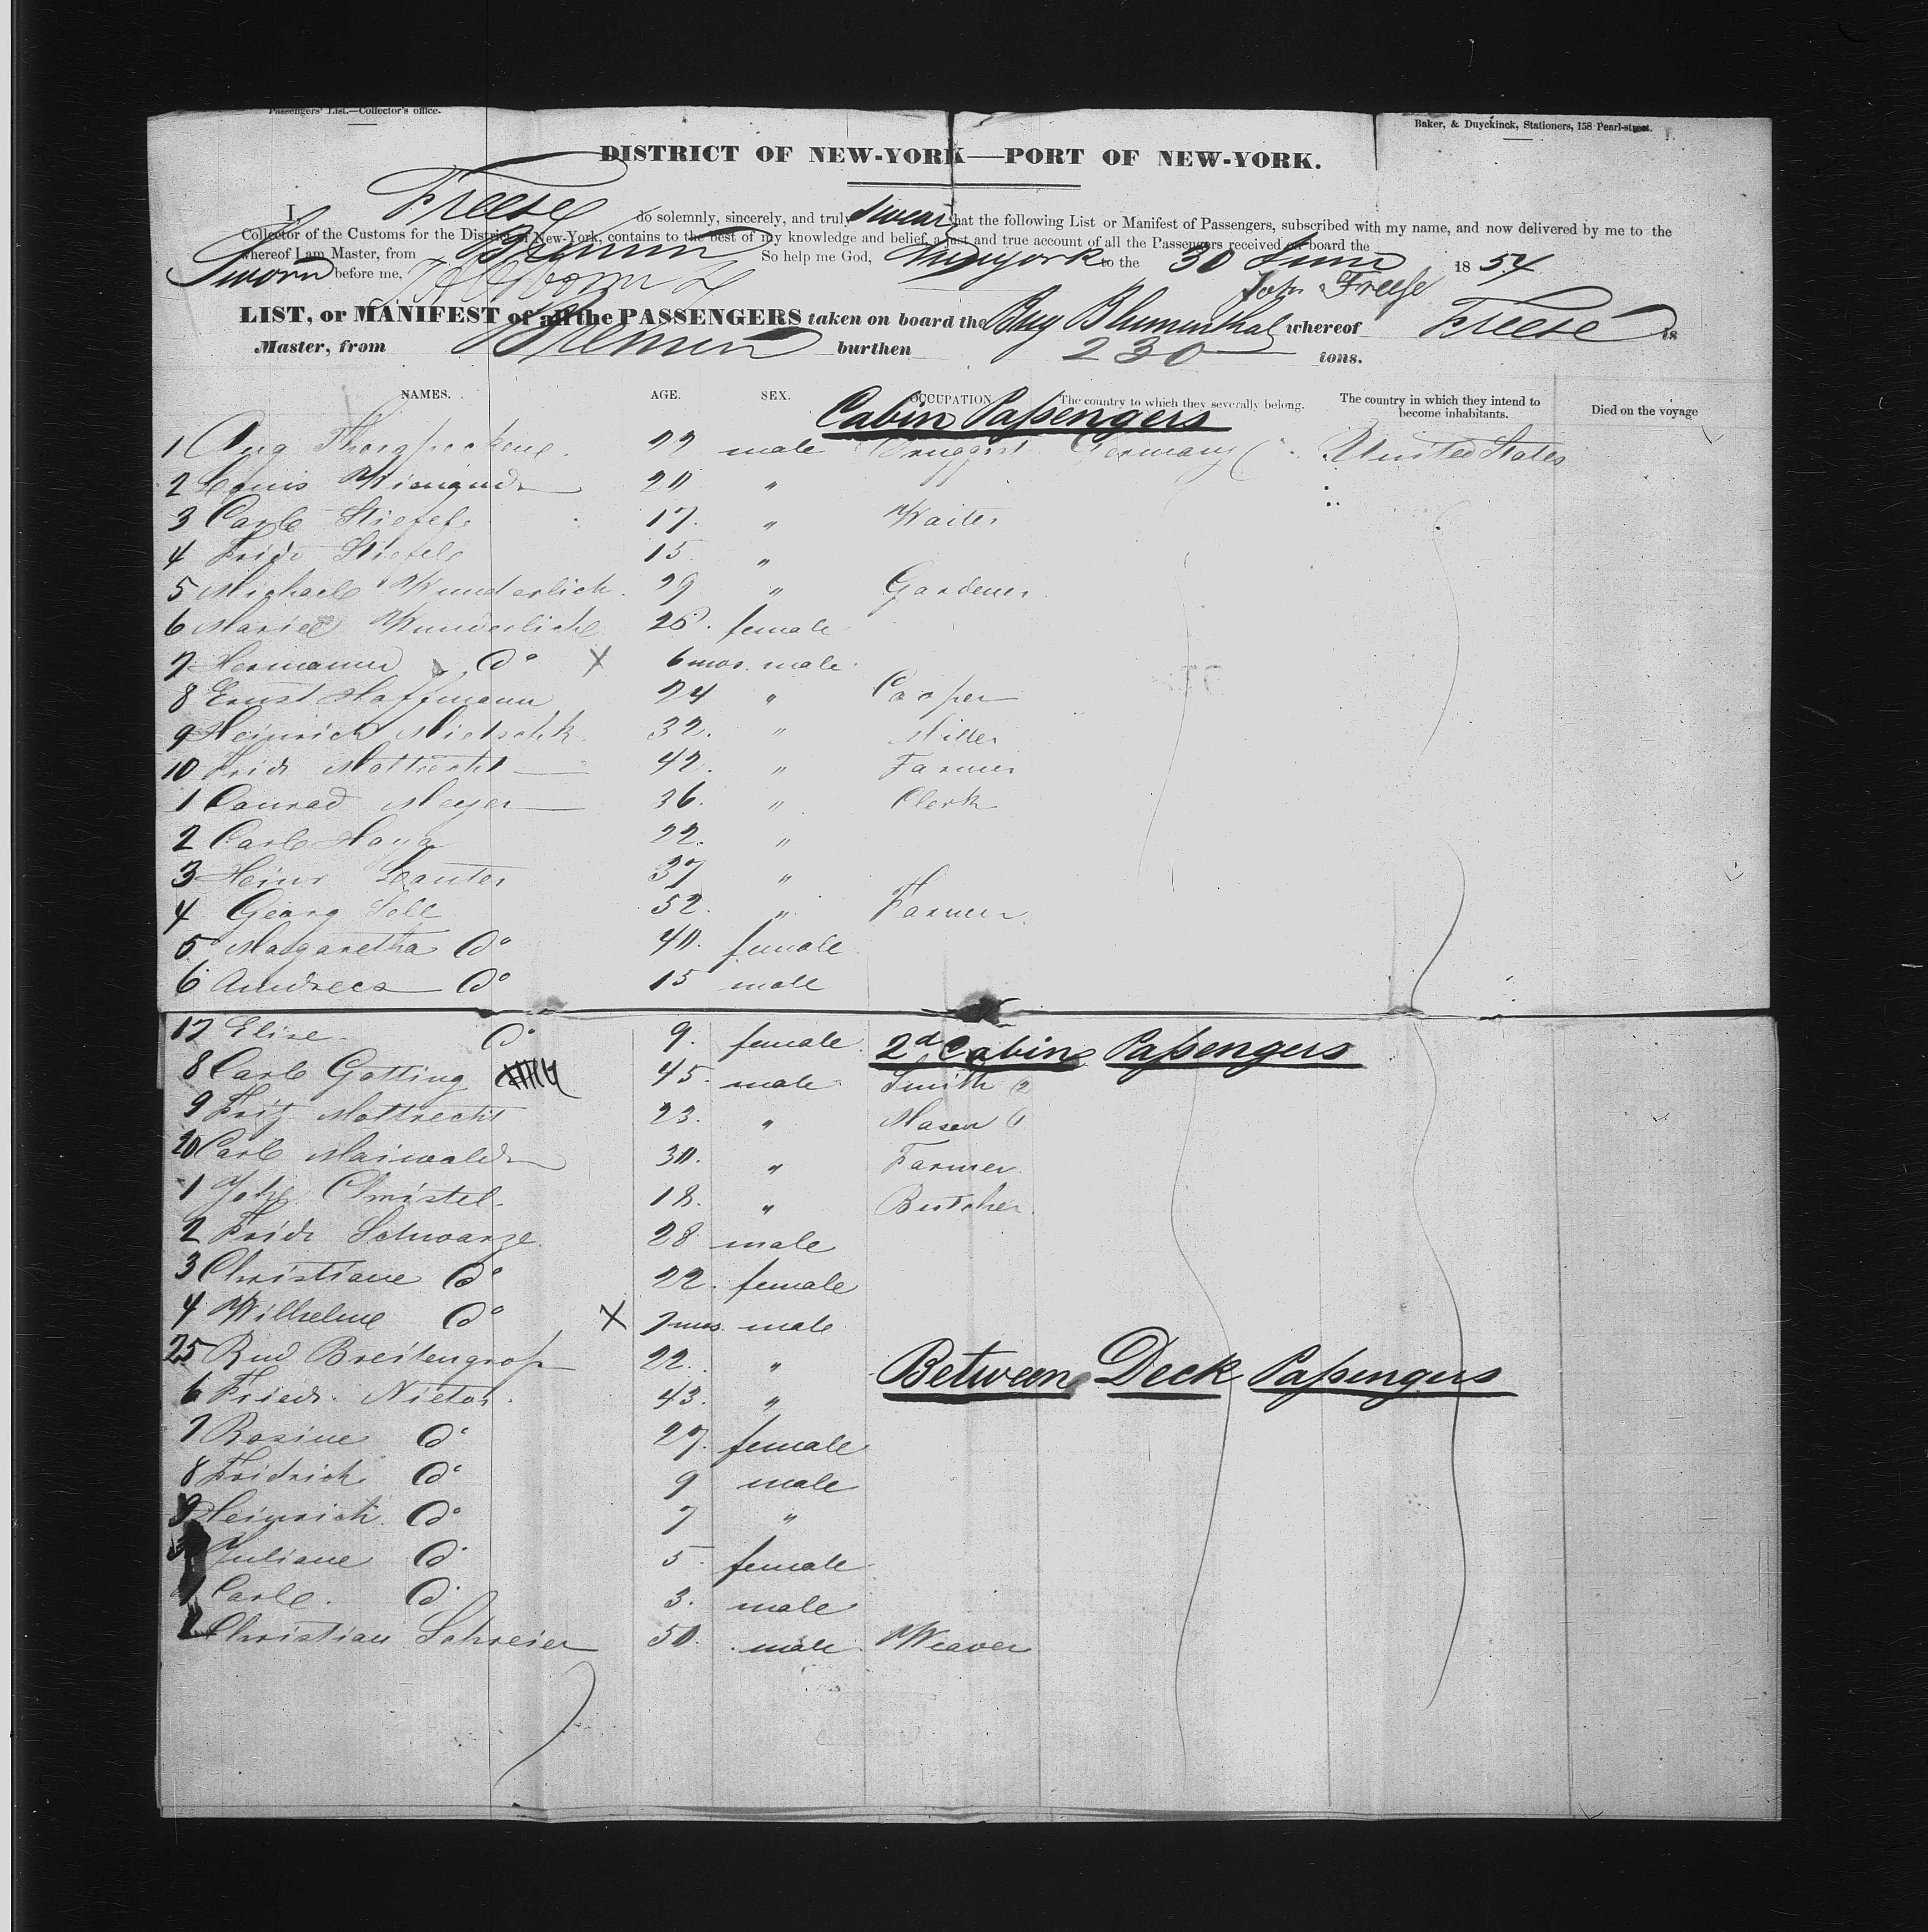 Passengers' List.—Collector's office.
Baker, & Duyckinck, Stationers, 158 Pearl-street.
DISTRICT OF NEW-YORK—PORT OF NEW-YORK.
I, Freese do solemnly, sincerely, and truly swear that the following List or Manifest of Passengers, subscribed with my name, and now delivered by me to the
Collector of the Customs for the District of New-York, contains to the best of my knowledge and belief, a just and true account of all the Passengers received on board the
whereof I am Master, from Bremen So help me God, Newyork to the 30 June 1854
Sworn before me, John Freese
LIST, or MANIFEST of all the PASSENGERS taken on board the Brig Blumenthal whereof Freese is
Master, from Bremen burthen 230 tons.
NAMES. AGE. SEX. OCCUPATION The country to which they severally belong. The country in which they intend to become inhabitants. Died on the voyage
Cabin Passengers
1 Aug 22 male Druggist Germany United States
2 Louis 20 "
3 Carl Stiefel 17. " Waiter
4 Fridr Stiefel 15 "
5 Michael Wunderlich. 29 " Gardener
6 Marie Wunderlich 26. female
7 Hermann do X 6 mos. male
8 Ernst Hoffmann 24 " Cooper
9 Heinrich 32. " Miller
10 Fridr Mottrecht 42. " Farmer
1 Conrad Meyer 36. " Clerk
2 Carl 22. "
3 Heinr 37 "
4 Georg Sell 52. " Farmer
5 Margaretha do 40. female
6 Andreas do 15 male
17 Elise do 9. female
2d Cabin Passengers
8 Carl Gotting 45. male Smith
9 Fritz Mottrecht 23. " Mason
20 Carl Maiwald 30. " Farmer
1 Joh. Christel. 18. " Butcher
2 Fridr Schwarze 28 male
3 Christiane do 22. female
4 Wilhelm do X 7 mos. male
25 Rud Breitengross 22. "
Between Deck Passengers
6 Friedr. Nietor. 43. "
7 Rosine do 27. female
8 Fridrich do 9 male
9 Heinrich do 7 "
Juliane do 5. female
1 Carl. do 3. male
2 Christian Schreier 50. male Weaver